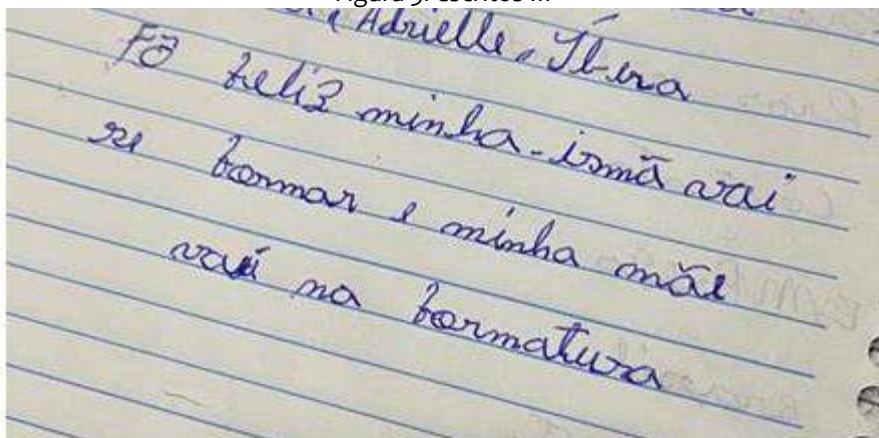 Adrielle,
Tô feliz minha-irmã vai
se formar e minha mãe
vai na formatura